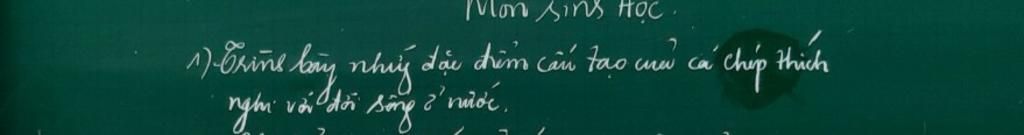 Môn Sinh Học.
1) Trình bày những đặc điểm cấu tạo của cá chép thích
nghi với đời sống ở nước.